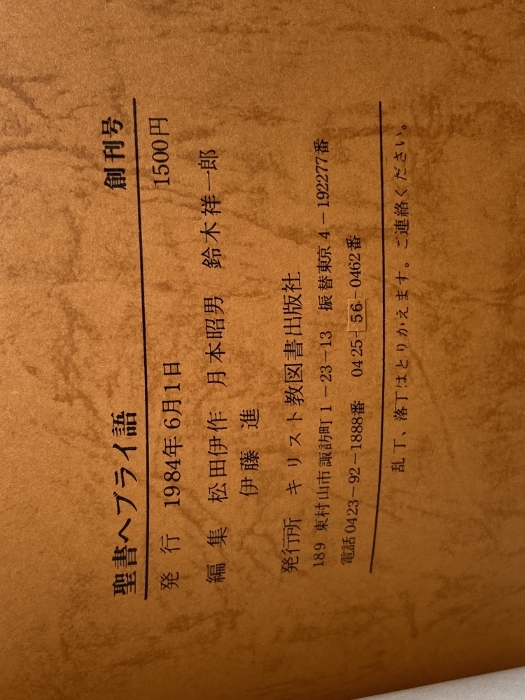 聖書ヘブライ語 創刊号
発行 1984年6月1日 1500円
編集 松田伊作 月本昭男 鈴木祥一郎
伊藤進
発行所 キリスト教図書出版社
189 東村山市諏訪町1-23-13 振替東京4-192277番
電話0423-92-1888番 0425-56-0462番
乱丁、落丁はとりかえます。ご連絡ください。